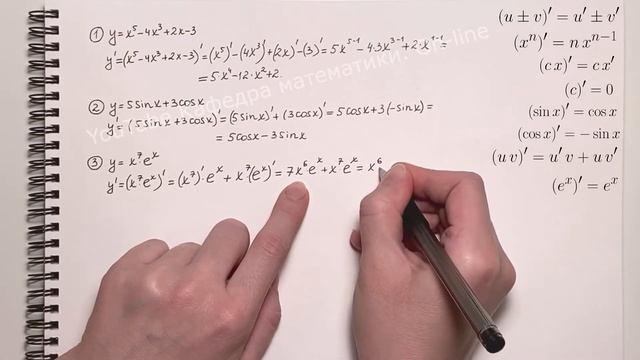 ① y = x⁵ - 4x³ + 2x - 3
y' = (x⁵ - 4x³ + 2x - 3)' = (x⁵)' - (4x³)' + (2x)' - (3)' = 5x⁵⁻¹ - 4·3x³⁻¹ + 2·x¹⁻¹ =
= 5x⁴ - 12·x² + 2.
② y = 5sinx + 3cosx
y' = (5sinx + 3cosx)' = (5sinx)' + (3cosx)' = 5cosx + 3(-sinx) =
= 5cosx - 3sinx
③ y = x⁷eˣ
y' = (x⁷eˣ)' = (x⁷)'·eˣ + x⁷(eˣ)' = 7x⁶eˣ + x⁷eˣ = x⁶
(u ± v)' = u' ± v'
(xⁿ)' = n xⁿ⁻¹
(c x)' = c x'
(c)' = 0
(sin x)' = cos x
(cos x)' = − sin x
(u v)' = u' v + u v'
(eˣ)' = eˣ
Youtube Кафедра математики. On-line